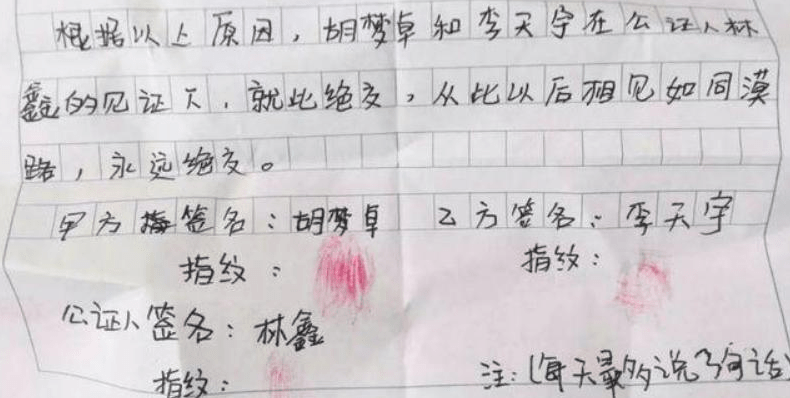 根据以上原因，胡梦卓和李天宇在公证人林
鑫的见证下，就此绝交，从此以后相见如同漠
路，永远绝交。
甲方指签名：胡梦卓 乙方签名：李天宇
指纹： 指纹：
公证人签名：林鑫
指纹： 注：(每天最多说3句话)